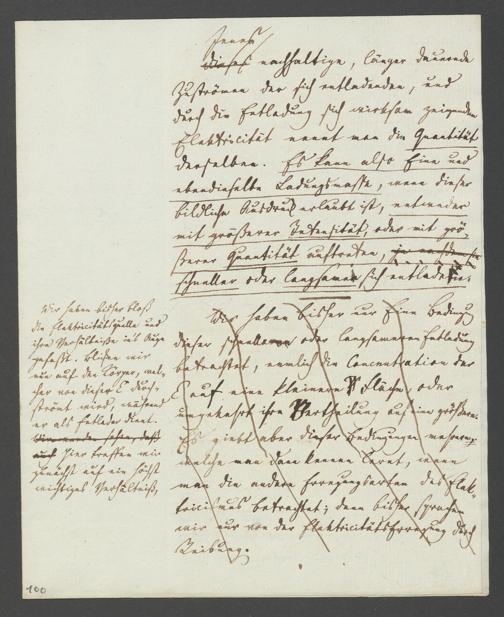 Jenes
dieses nachhaltige, länger dauernde
Zuströmen der sich entladenden, und
durch die Entladung sich wirksam zeigenden
Elektricität nennt man die Quantität
derselben. Es kann also Eine und
ebendieselbe Ladungsmasse, wenn dieser
bildliche Ausdruck erlaubt ist, entweder
mit größerer Intensität, oder mit grö-
ßerer Quantität auftreten,
schneller oder langsamer sich entladen.
Wir haben bisher nur Eine Bedingung
dieser schnelleren oder langsameren Entladung
betrachtet, nemlich die Concentration der
auf eine kleinere Fläche, oder
umgekehrt ihre Vertheilung auf eine größere.
Es giebt aber dieser Bedingungen mehrere,
welche man dann kennen lernt, wenn
man die andern Erregungsarten des Elek-
tricismus betrachtet; denn bisher sprachen
wir nur von der Elektricitätserregung durch
Reibung.
Wir haben bisher bloß
die Elektricitätsquelle und
ihre Verhältniße ins Auge
gefaßt. Blicken wir
nun auf den Körper, wel-
cher von dieser durch-
strömt wird, während
er als Entlader dient.
hier treffen wir
zunächst auf ein höchst
wichtiges Verhältniß,
100